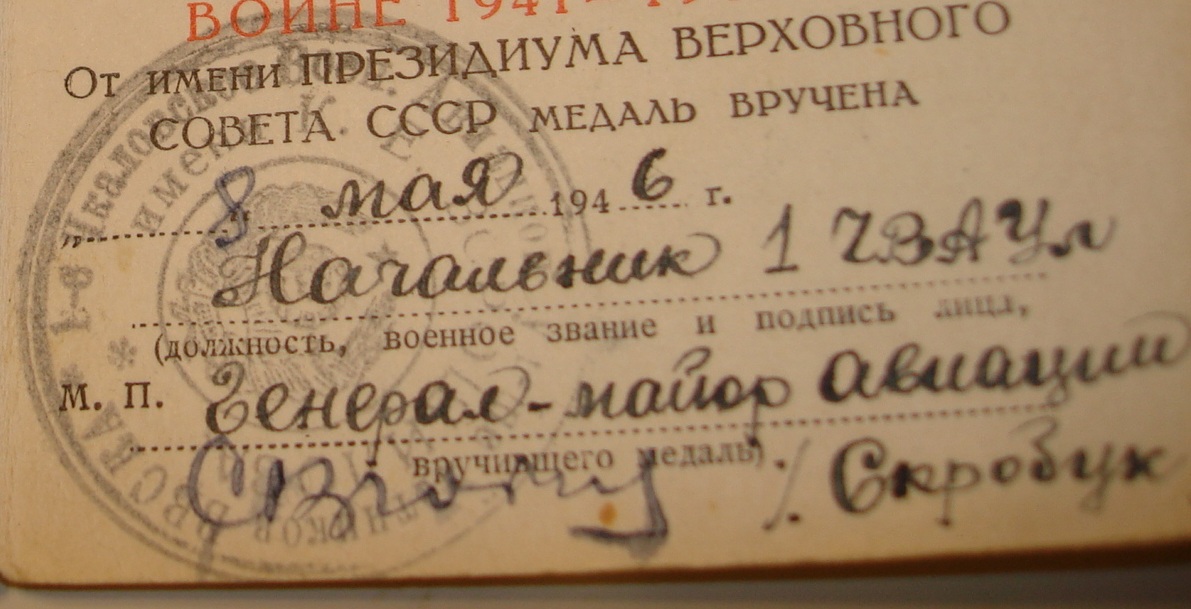 ВОЙНЕ 1941—19
От имени ПРЕЗИДИУМА ВЕРХОВНОГО
СОВЕТА СССР МЕДАЛЬ ВРУЧЕНА
„8 мая 1946 г.
Начальник 1 ЧВАУл
(должность, военное звание и подпись лица,
М. П. Генерал-майор авиации
вручившего медаль). / Скробук
1-е Чкаловское
имени К.
ВВС КА